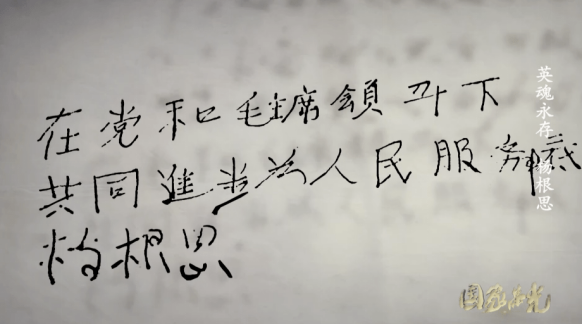 在党和毛主席領下
共同進步为人民服务
杨根思
英魂永存·杨根思
国家荣光